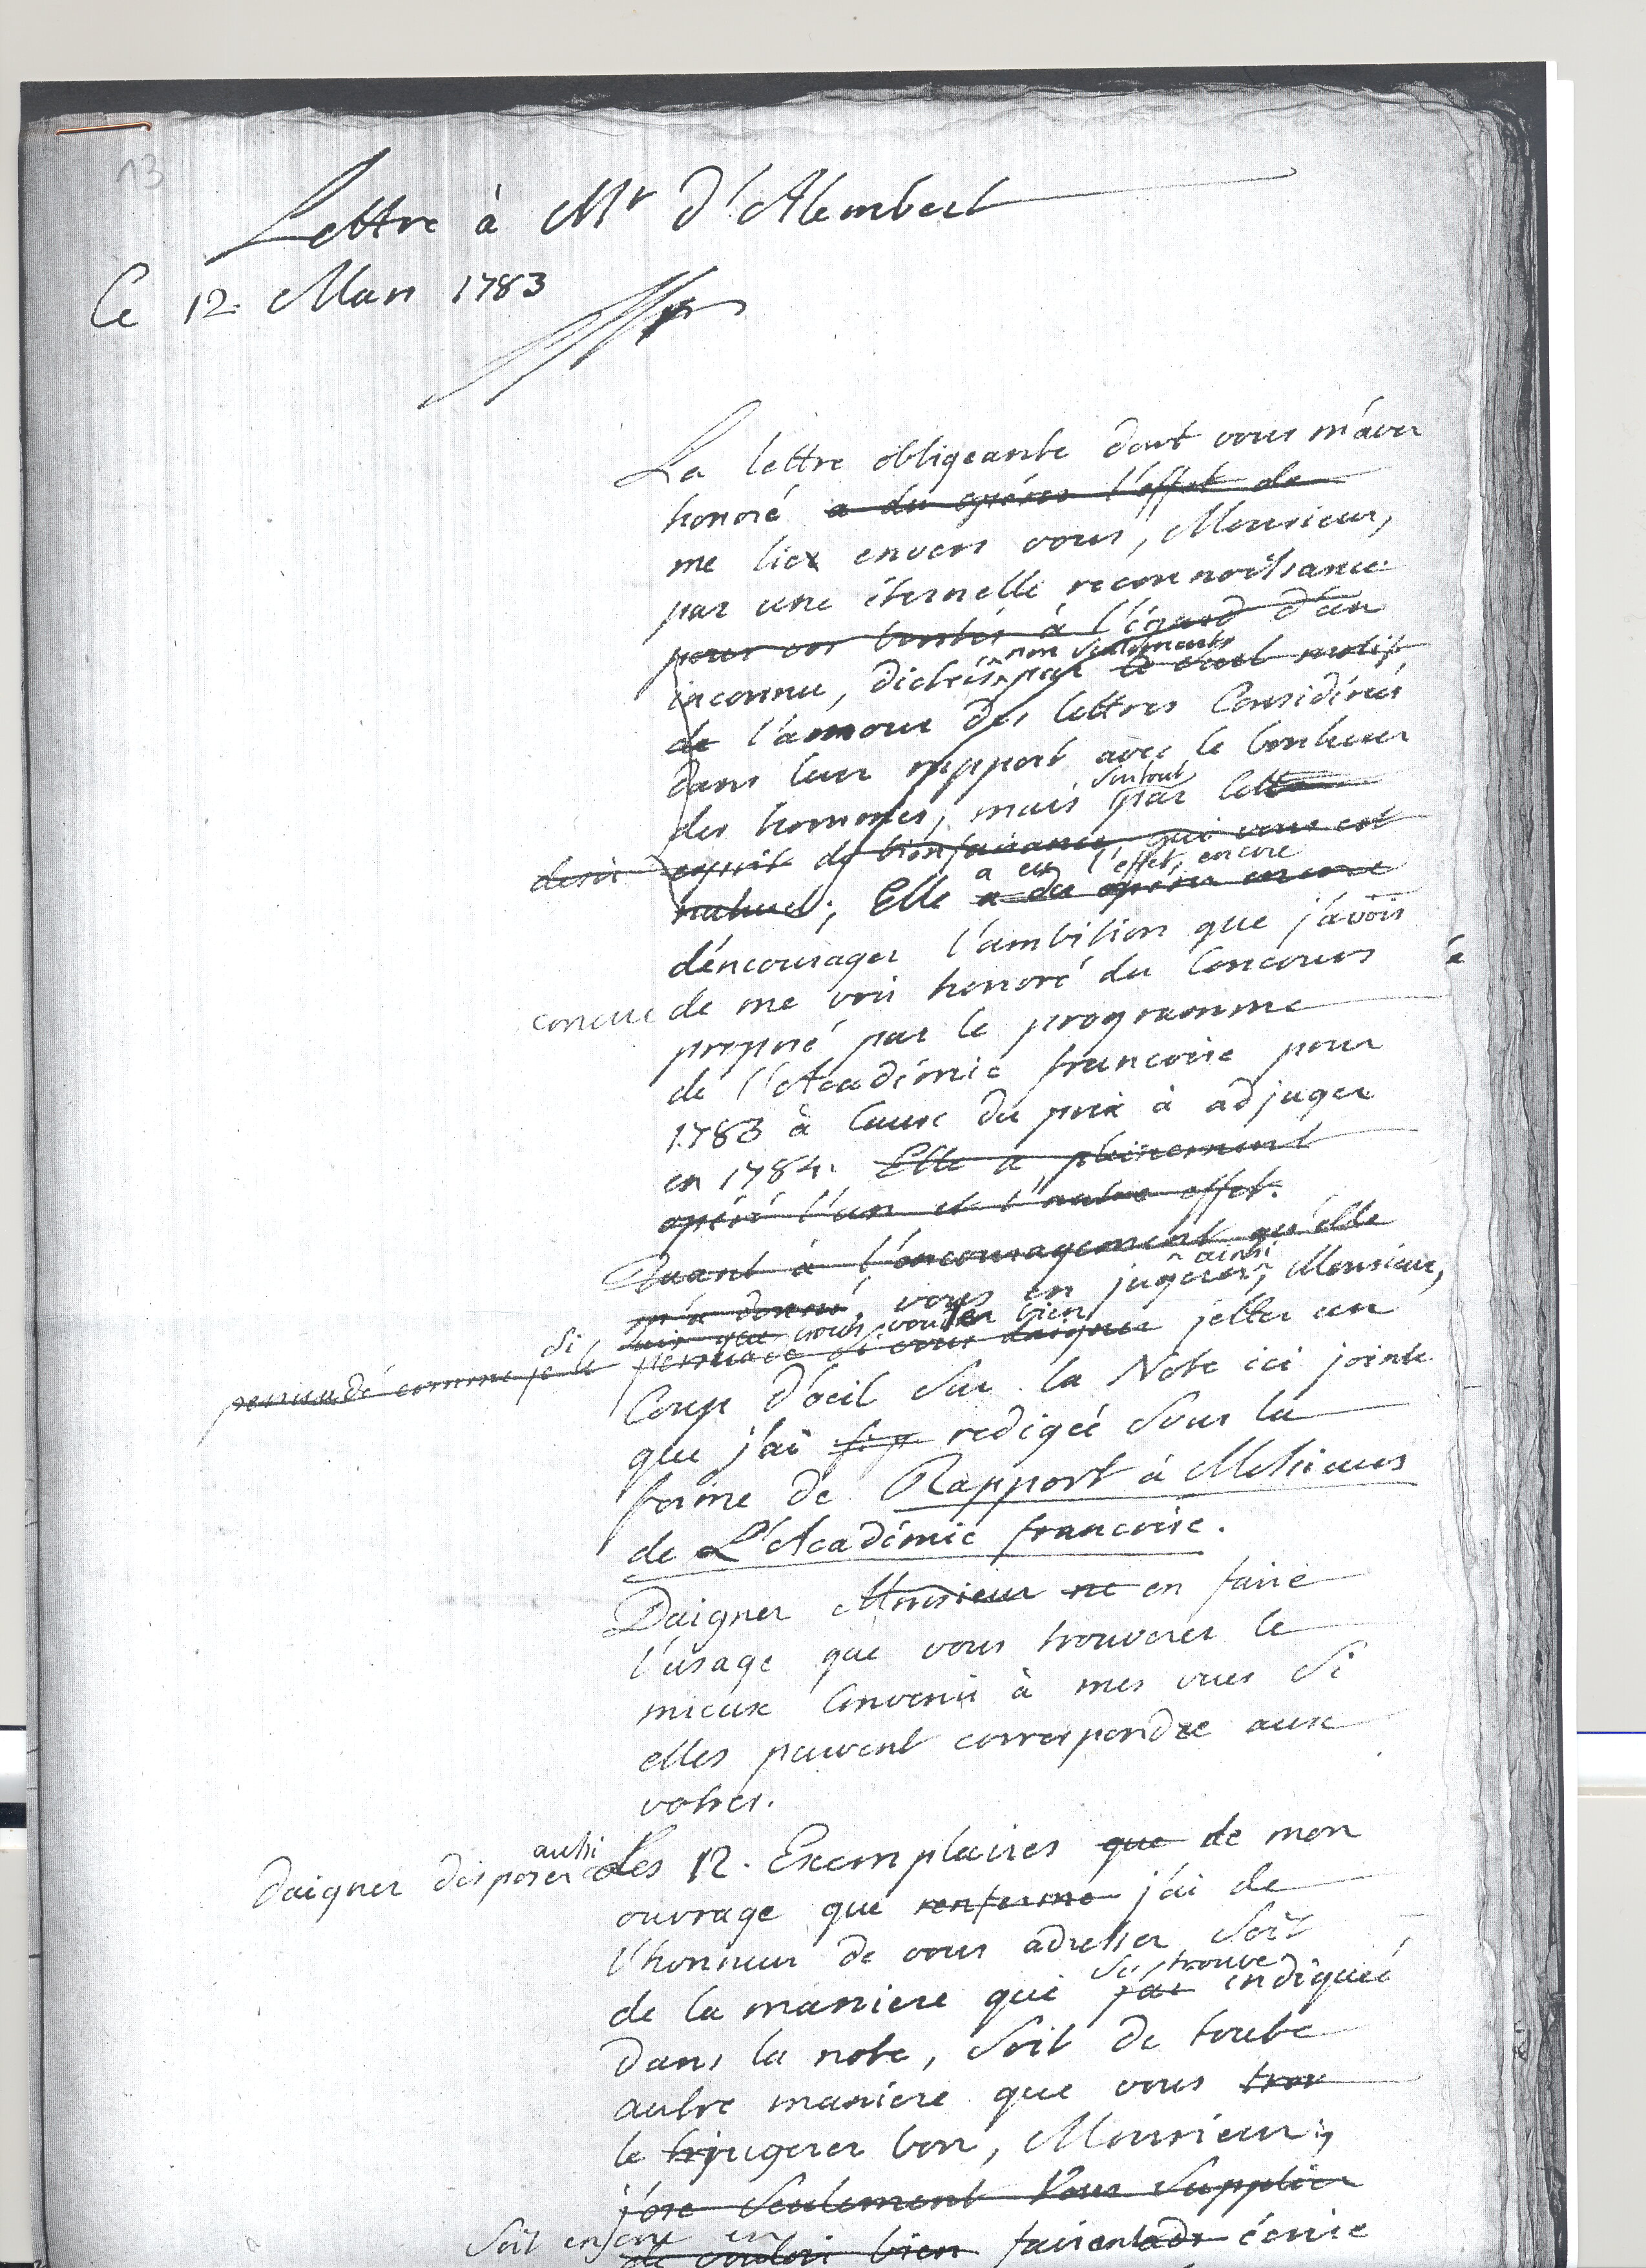 13
Lettre à Mr d'Alembert
Ce 12. Mars 1783
La lettre obligeante dont vous m'avez
honoré a du opérer l'effet de
me lier envers vous, Monsieur,
par une éternelle reconnoissance
pour vos bontés à l'égard d'un
non seulement
inconnu, dictées par le seul motif
de l'amour des lettres Considérées
dans leur rapport avec le bonheur
surtout
des hommes, mais par cette
desir esprit de bienfaisance qui vous est
a eu l'effet encore
naturel; Elle a du opérer encore
d'encourager l'ambition que j'avois
concue de me voir honoré du Concours
proposé par le programme
de l'Académie francoise pour
1783 à Cause du prix à adjuger
en 1784. Elle a pleinement
opéré l'un et l'autre effet.
Quant à l'encouragement qu'elle
ainsi
m'a donné, vous en jugerez, Monsieur,
si vous voulez bien
persuadé comme je le si vous daignez jetter un
Coup d'oeil sur la Note ici jointe
que j'ai redigée sous la
forme de Rapport à Messieurs
de L'Académie francoise.
Daignez Monsieur en faire
l'usage que vous trouverez le
mieux Convenir à mes vues si
elles peuvent correspondre aux
votres.
aussi
daignez disposer des 12. Exemplaires que de mon
ouvrage que renferme j'ai de
l'honneur de vous adresser soit
se trouve
de la maniere qui j'ai indiquée
dans la note, soit de toute
autre maniere que vous trou
le jugerez bon, Monsieur,
j'ose seulement vous supplier
soit en
de vouloir bien écrire